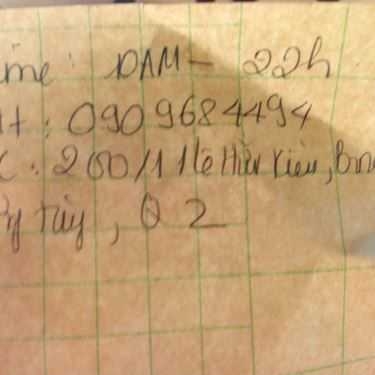 ime: DAM - 22h
t : 0909684494
: 200/11 Lê Hữu Kiều, Bìn
Tây, Q 2